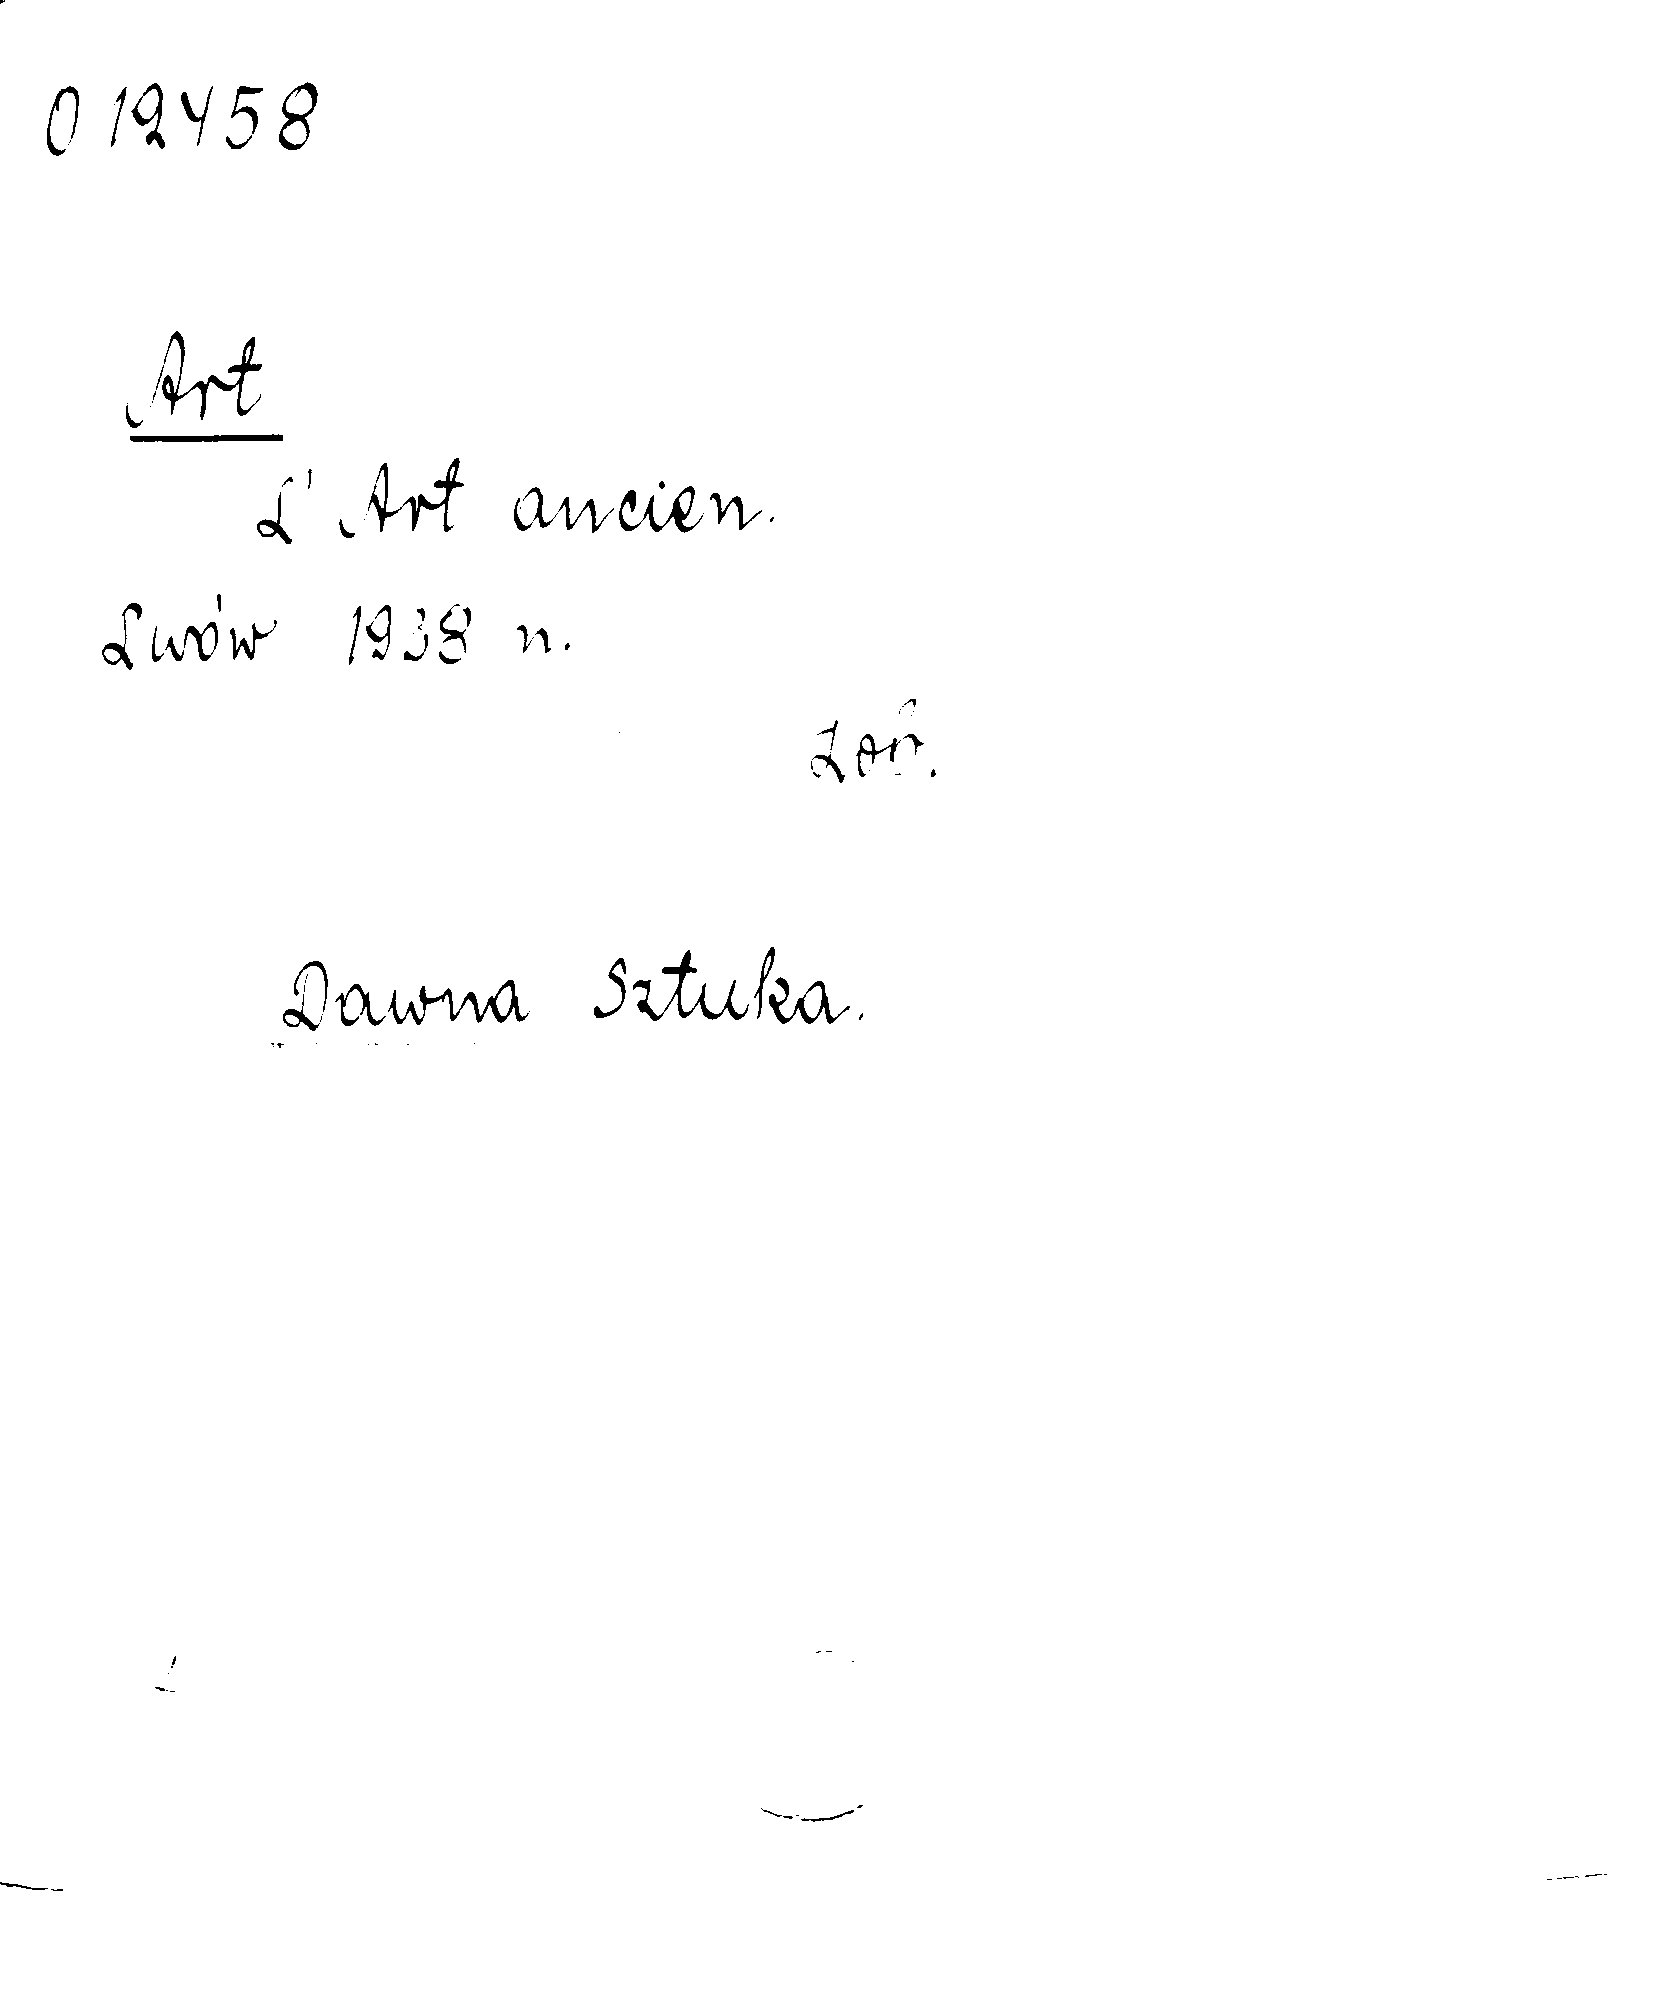 012458
Art
L'Art ancien.
Lwów 1938 n.
Zob.
Dawna Sztuka.